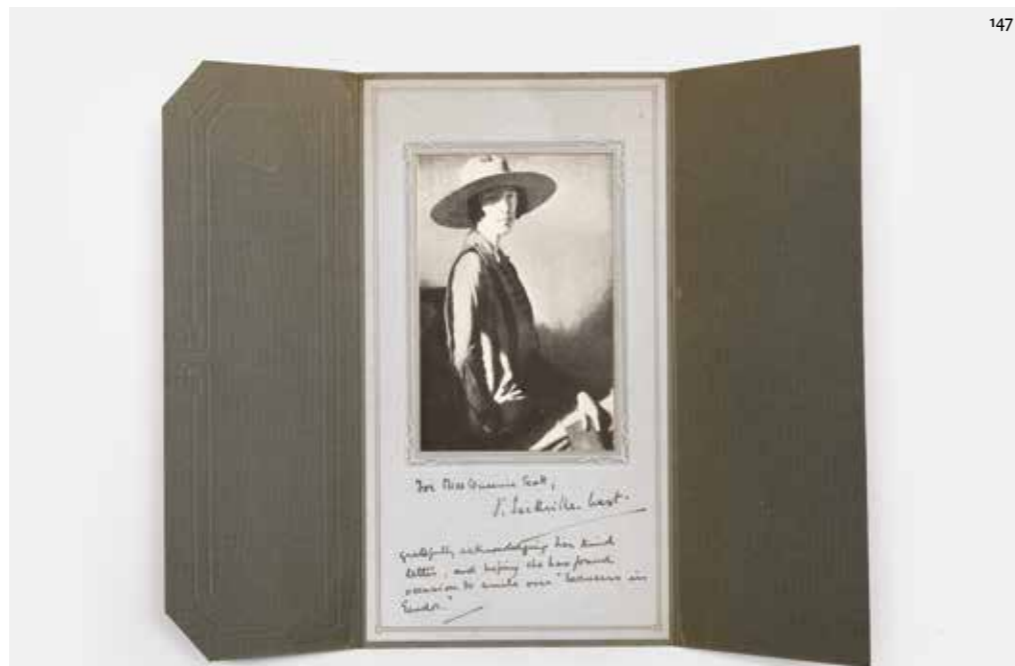 147
For Miss Queenie Scott,
V. Sackville-West.
gratefully acknowledging her kind
letter, and hoping she has found
occasion to smile over "Seducers in
Ecuador."